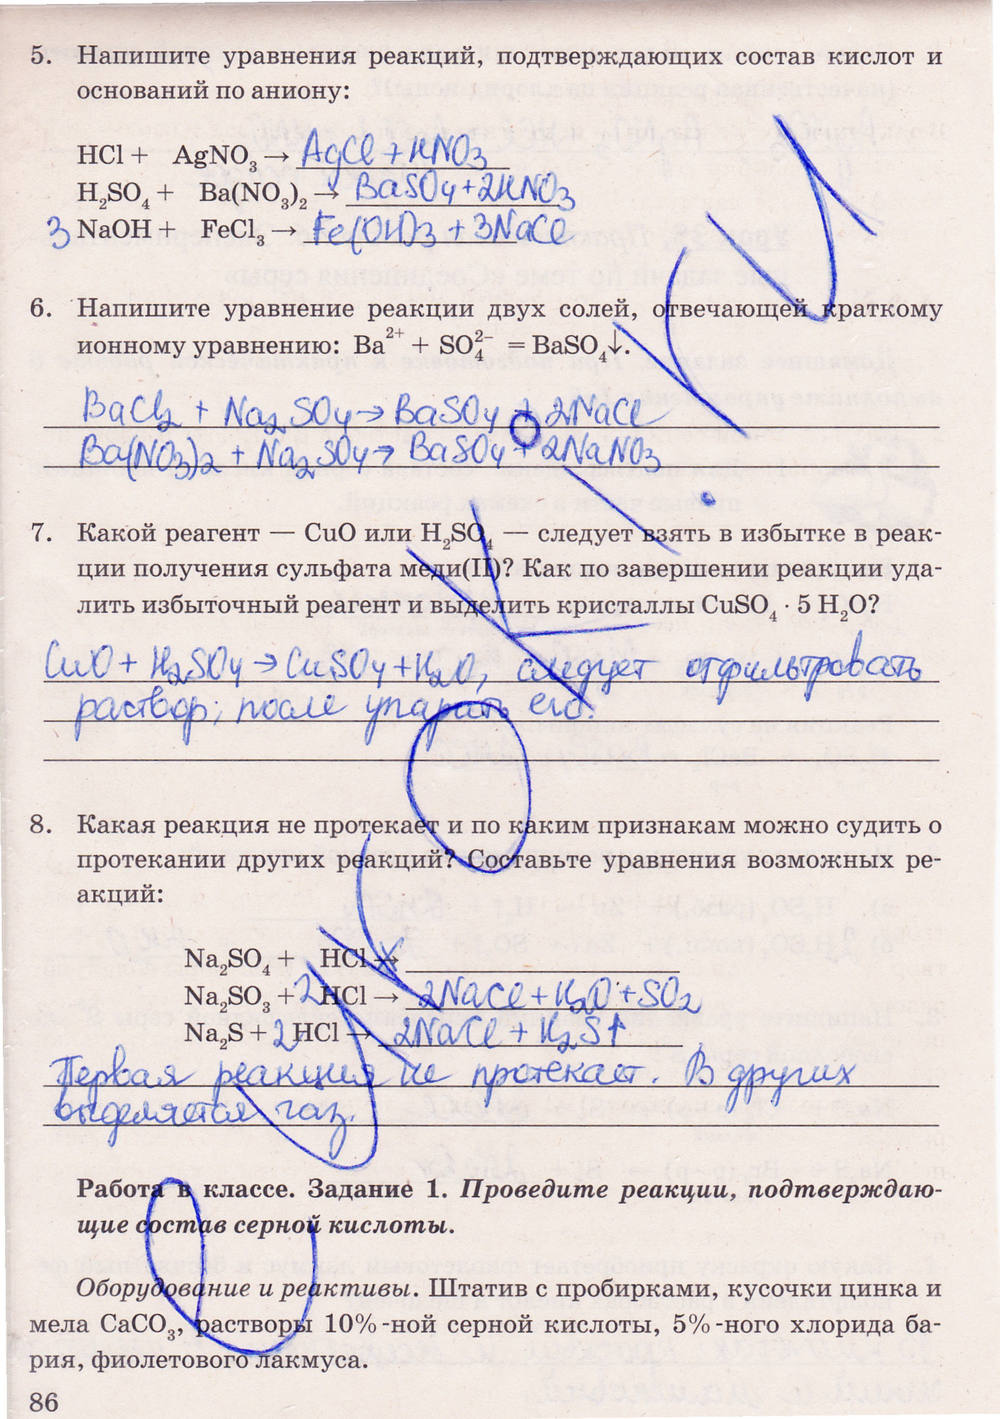 5. Напишите уравнения реакций, подтверждающих состав кислот и
оснований по аниону:
HCl + AgNO₃ → AgCl + HNO₃
H₂SO₄ + Ba(NO₃)₂ → BaSO₄ + 2HNO₃
3 NaOH + FeCl₃ → Fe(OH)₃ + 3NaCl
6. Напишите уравнение реакции двух солей, отвечающей краткому
ионному уравнению: Ba²⁺ + SO₄²⁻ = BaSO₄↓.
BaCl₂ + Na₂SO₄ → BaSO₄ + 2NaCl
Ba(NO₃)₂ + Na₂SO₄ → BaSO₄ + 2NaNO₃
7. Какой реагент — CuO или H₂SO₄ — следует взять в избытке в реак-
ции получения сульфата меди(II)? Как по завершении реакции уда-
лить избыточный реагент и выделить кристаллы CuSO₄ · 5 H₂O?
CuO + H₂SO₄ → CuSO₄ + H₂O, следует отфильтровать
раствор, после упарать его.
8. Какая реакция не протекает и по каким признакам можно судить о
протекании других реакций? Составьте уравнения возможных ре-
акций:
Na₂SO₄ + HCl →
Na₂SO₃ + 2HCl → 2NaCl + H₂O + SO₂
Na₂S + 2HCl → 2NaCl + H₂S↑
Первая реакция не протекает. В других
выделяется газ.
Работа в классе. Задание 1. Проведите реакции, подтверждаю-
щие состав серной кислоты.
Оборудование и реактивы. Штатив с пробирками, кусочки цинка и
мела CaCO₃, растворы 10%-ной серной кислоты, 5%-ного хлорида ба-
рия, фиолетового лакмуса.
86